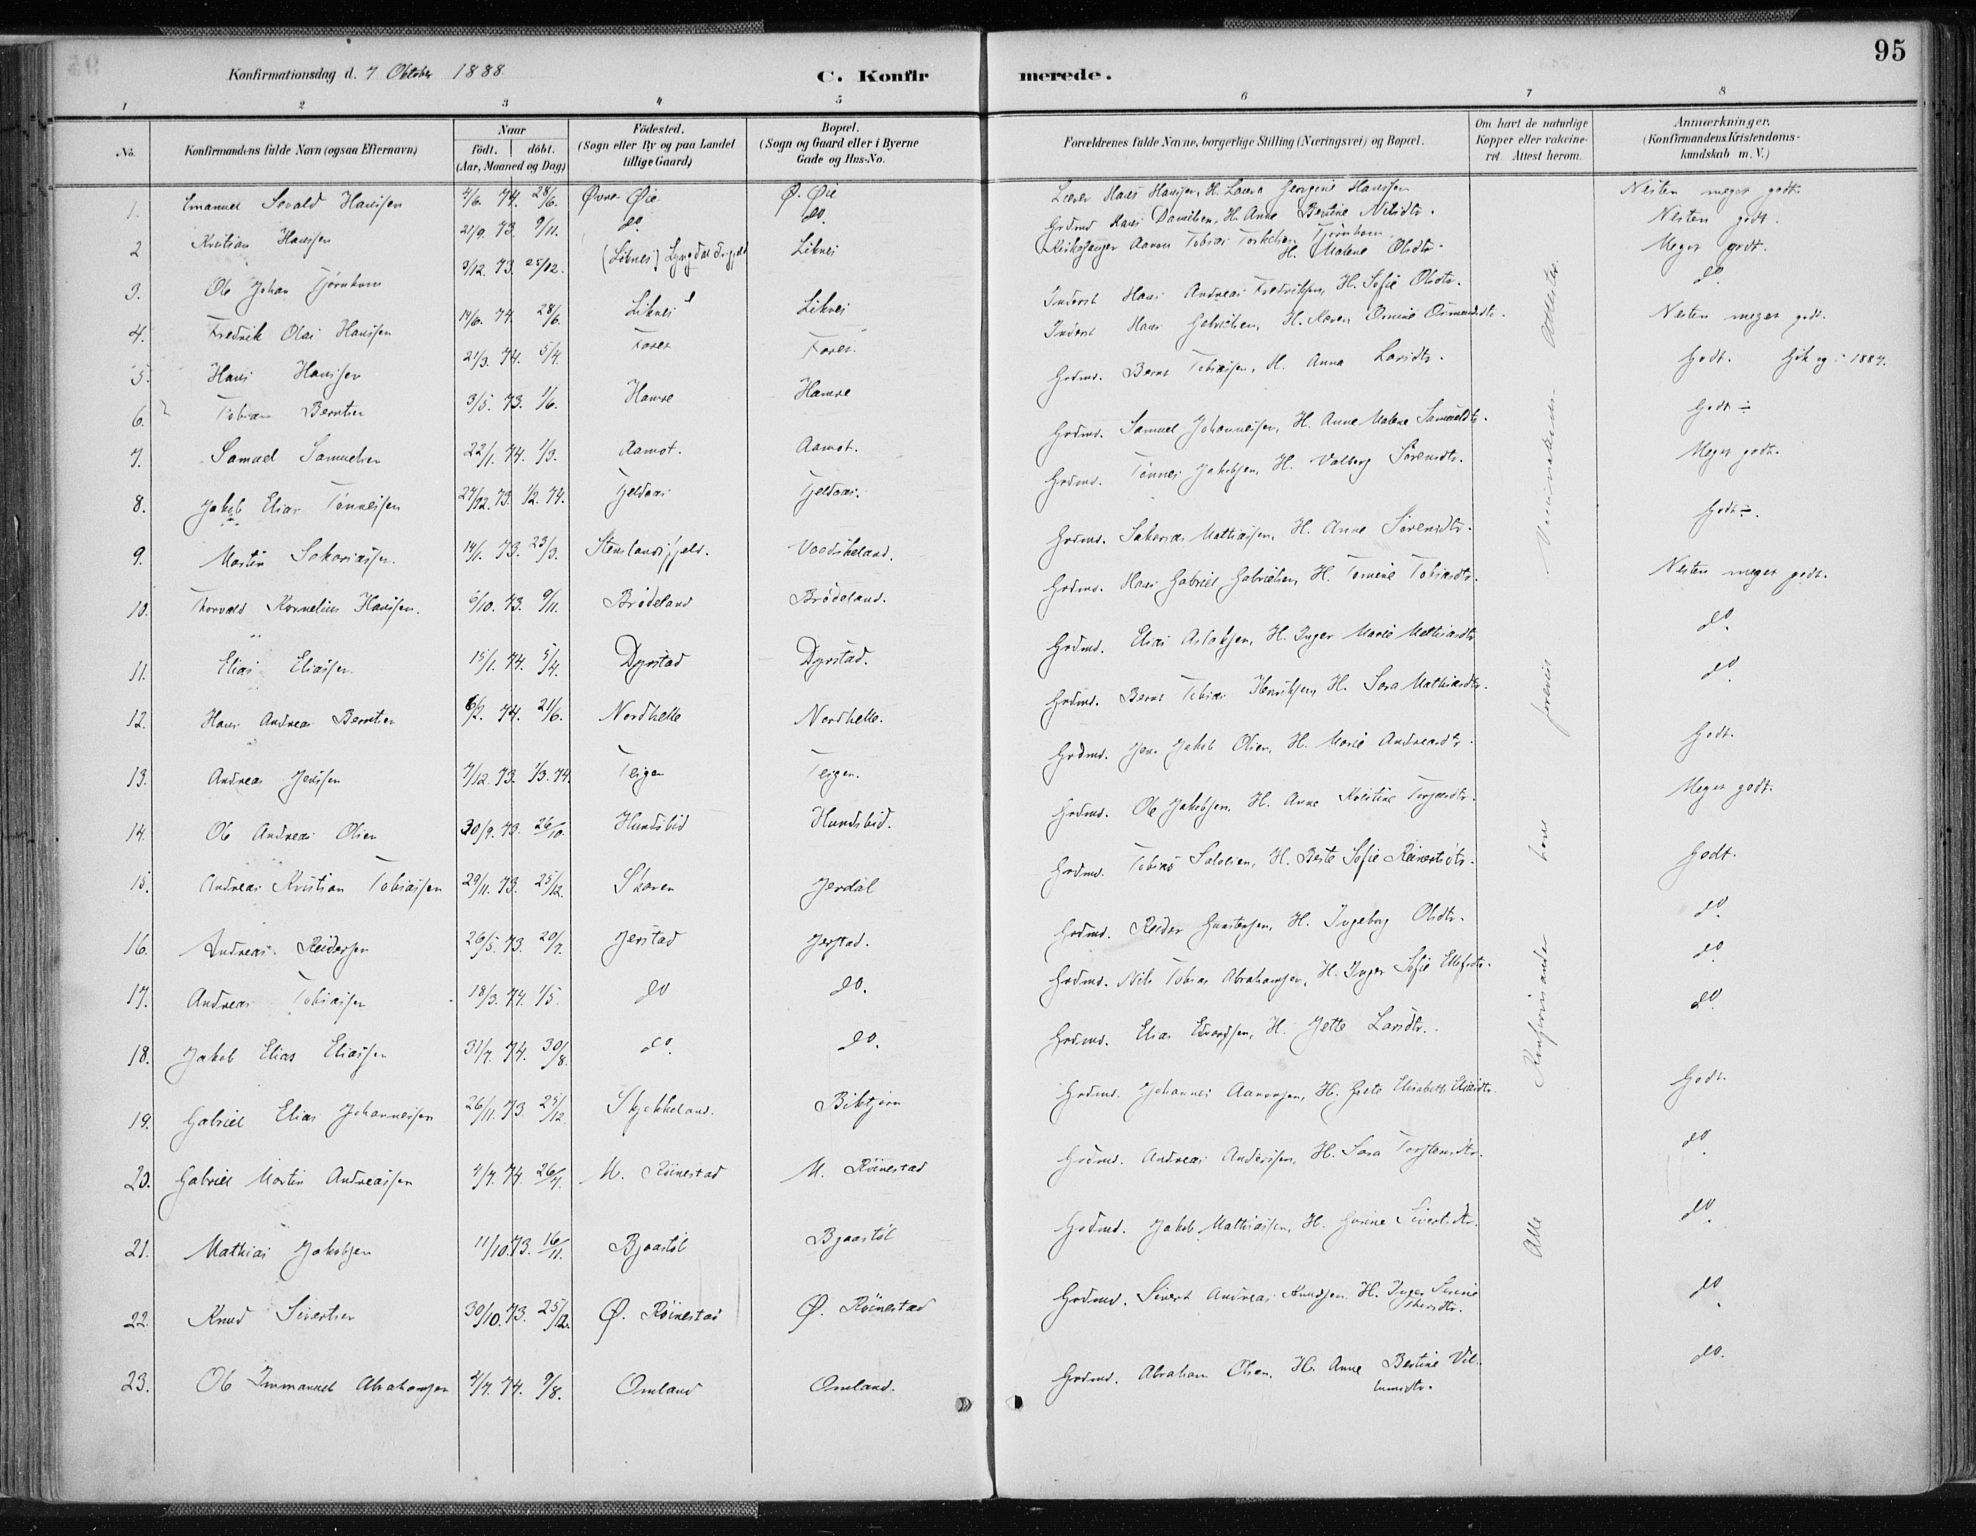 95
Konfirmationsdag d. 7 Oktober 1888.
C. Konfirmerede.
1 2 3 4 5 6 7 8
No.
Konfirmandens fulde Navn (ogsaa Efternavn)
Naar
født. døbt.
(Aar, Maaned og Dag)
Fødested.
(Sogn eller By og paa Landet
tillige Gaard)
Bopæl.
(Sogn og Gaard eller i Byerne
Gade og Hus-No.
Forældrenes fulde Navne, borgerlige Stilling (Næringsvei) og Bopæl.
Om havt de naturlige
Kopper eller vakcine-
ret. Attest herom.
Anmærkninger.
(Konfirmandens Kristendoms-
kundskab m. V.)
1. Emanuel Sevald Hanssen 4/6. 74. 28/6. Øvre Øie Ø. Øie Lærer Hans Hanssen, H. Laura Georgine Hanssen Nesten meget godt.
2 Kristian Hanssen 21/9. 73. 9/11. do. do. Grdmd Hans Danielsen, H. Anne Bertine Nilsdtr. Nesten godt.
3. Ole Johan Tjørnhom 3/12. 73. 25/12. (Liknes) Lyngdal Liknes Kirkesanger Aaron Tobias Torkelsen Tjørnhom H. Malene Olsdtr. Meget godt.
4. Fredrik Olai Hanssen 14/6. 74. 28/6. Liknes Liknes Inderst Hans Andreas Fredriksen, H. Sofie Olsdtr. do.
5. Hans Hanssen 21/3. 74. 5/4. Foren Foren. Inderst Hans Gabrielsen, H. Karen Osmundsdtr. Nesten meget godt.
6. Tobias Berntsen 3/5. 73. 1/6. Hamre Hamre Grdmd. Bernt Tobiassen, H. Anna Larsdtr. Godt. Gik og i 1887.
7. Samuel Samuelsen 22/1. 74. 1/3. Aamot. Aamot. Grdmd. Samuel Johannessen, H. Anne Malene Samuelsdtr. Godt ÷
8. Jakob Elias Tønnessen 27/12. 73. 1/2. 74. Fjeldsaa Fjeldsaa. Grdmd. Tønnes Jakobsen, H. Valborg Sørensdtr. Meget godt.
9. Martin Sakariassen. 14/1. 73. 23/3. Stenslandsfjeld. Vordskeland. Grdmd. Sakarias Mathiassen, H. Anne Sørensdtr. Godt ÷.
10. Torvald Kornelius Hanssen. 5/10. 73. 9/11. Brødeland Brødeland. Grdmd. Hans Gabriel Gabrielsen, H. Tomine Tobiasdtr. Nesten meget godt.
11. Elias Eliassen. 15/1. 74. 5/4. Dyrstad Dyrstad. Grdmd. Elias Aslaksen, H. Inger Marie Mathiasdtr do.
12. Hans Andreas Berntsen 6/2. 74. 21/6. Nordhelle Nordhelle. Grdmd. Bernt Tobias Henriksen, H. Sara Mathiasdtr. do.
13. Andreas Jenssen 7/12. 73. 1/3. 74. Teigen Teigen. Grdmd. Jens Jakob Olsen, H. Marie Andreasdtr. Godt.
14. Ole Andreas Olsen 30/9. 73. 26/10. Hundsbid Hundsbid. Grdmd. Ole Jakobsen, H. Anne Kristine Terjesdtr. Meget godt.
15. Andreas Kristian Tobiassen 29/11. 73. 25/12. Skoren Jerdal Grdmd. Tobias Salvesen, H. Berte Sofie Reinertsdtr. Godt.
16. Andreas Reiersen 26/5. 73. 20/7. Jerstad Jerstad. Grdmd. Reier Gunstensen, H. Ingeborg Olsdtr. do.
17. Andreas Tobiassen 18/3. 74. 1/5. do do. Grdmd. Nils Tobias Abrahamsen, H. Inger Sofie Ellefsdtr. do.
18. Jakob Elias Eliassen 31/7. 74. 30/8. do. do. Grdmd. Elias Edvardsen, H. Jette Larsdtr. do.
19. Gabriel Elias Johannessen 26/11. 73. 25/12. Skjekkeland. Birkjørn Grdmd. Johannes Aaronsen, H. Grete Elisabeth Eliasdtr. Godt.
20. Gabriel Martin Andreassen 4/7. 74. 26/7. M. Röinestad M. Röinestad Grdmd. Andreas Anderssen, H. Sara Torstensdtr. do.
21. Mathias Jakobsen 11/10. 73. 16/11. Bjaastöl Bjaastöl Grdmd. Jakob Mathiassen, H. Gurine Sivertsdtr. do.
22. Knud Sivertsen 30/10. 73. 25/12. Ø. Röinestad Ø. Röinestad Grdmd. Sivert Andreas Knudsen H. Inger Serine do.
23. Ole Immanuel Abrahamsen 2/7. 74. 9/8. Omland Omland. Grdmd. Abraham Olsen, H. Anne Bertine Vil-
lumsdtr. do.
Alle Konfirmander have forevist Vaccinations Attester.